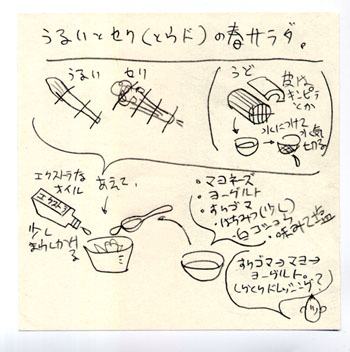 うるいとセリ(とウド)の春サラダ。
うるい
セリ
うど
皮は
キンピラ
とか
水につけて
水気
切る
エクストラな
オイル
エクストラ
少し
まわしかける
あえて、
・マヨネーズ
・ヨーグルト
・すりゴマ
・はちみつ(少し)
・白コショウ
・味みて塩
すりゴマ→マヨ→
ヨーグルト。